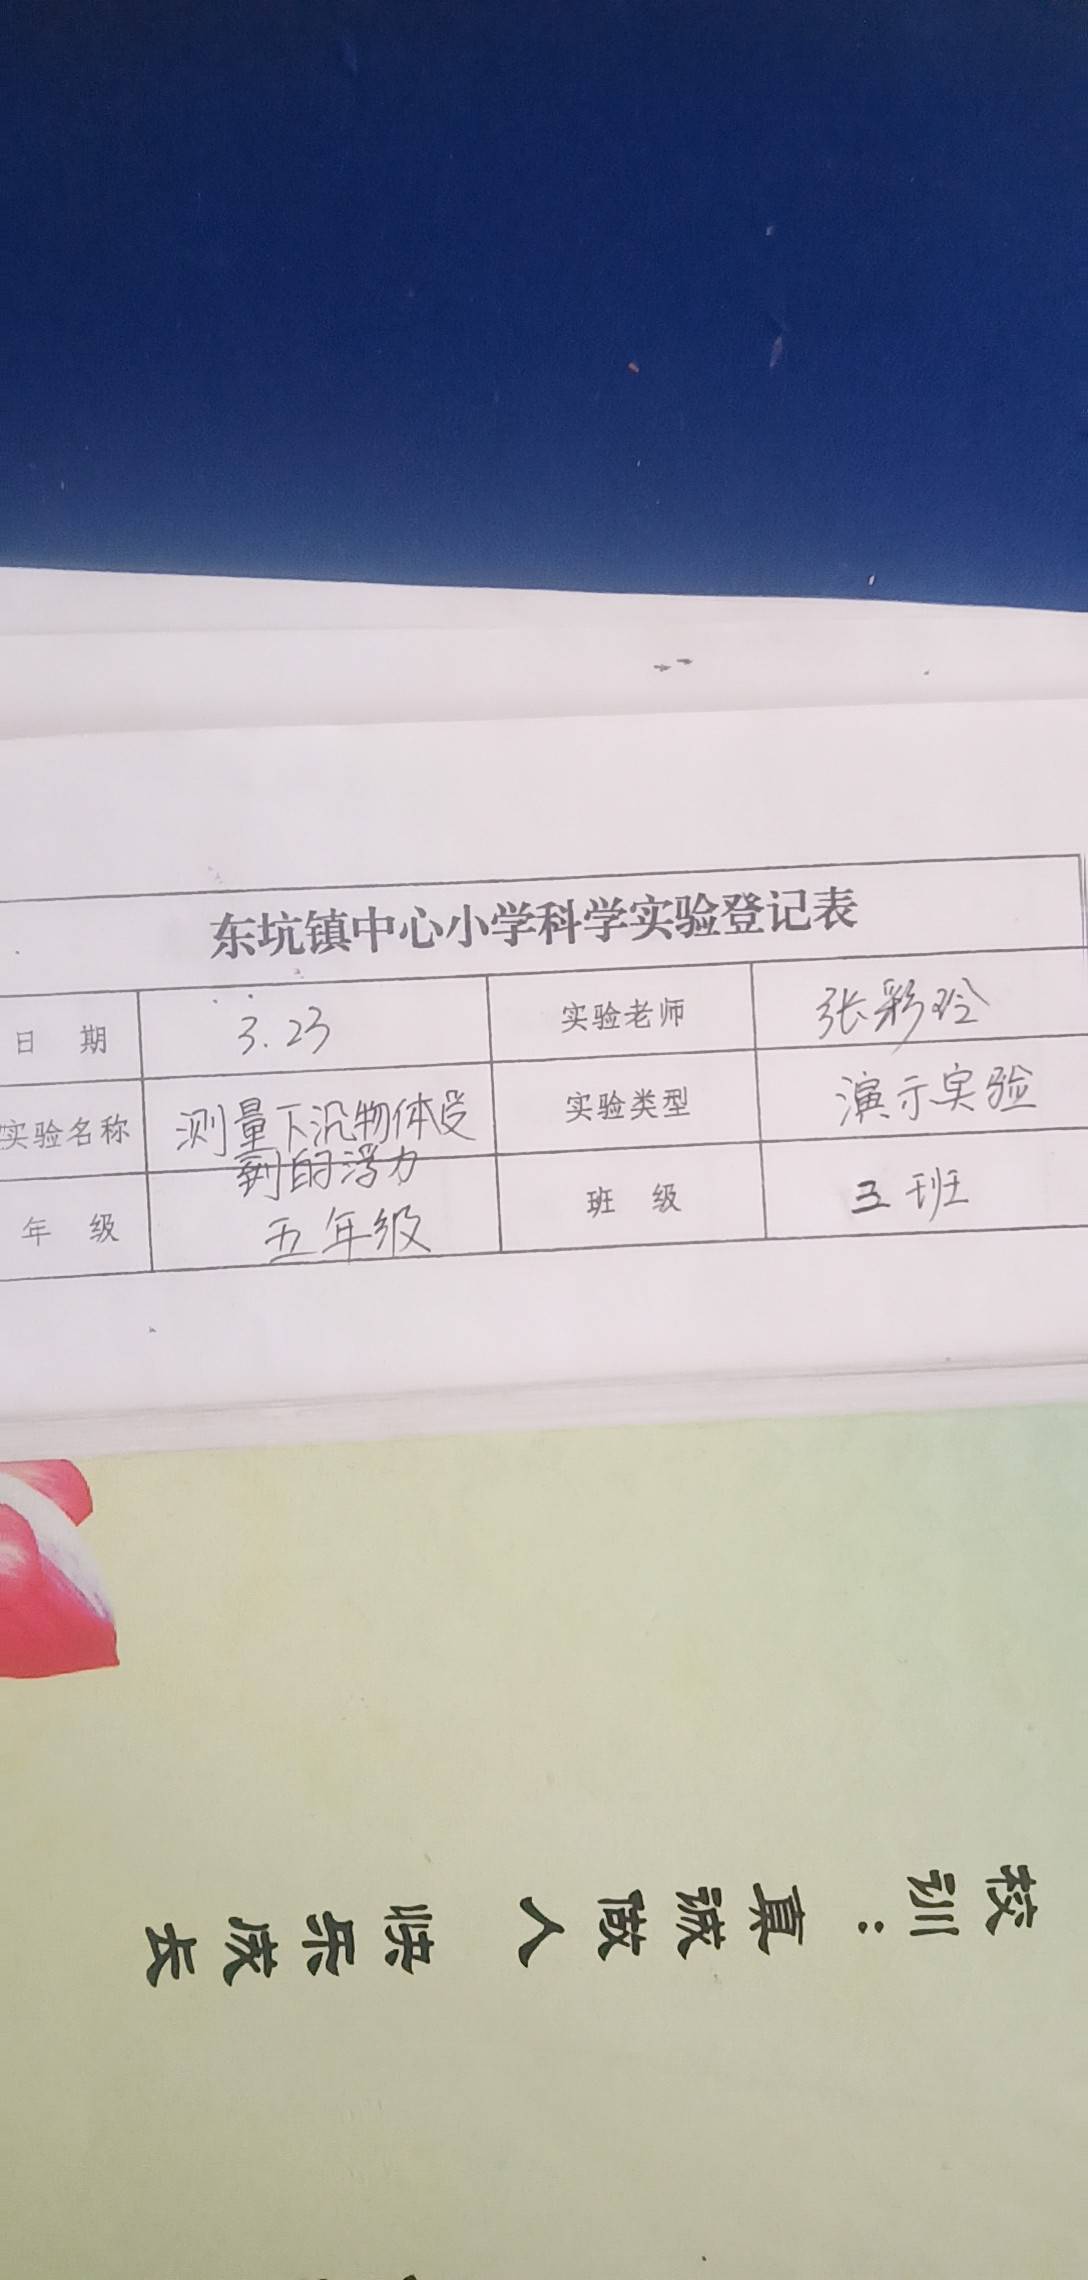 东坑镇中心小学科学实验登记表
日 期 3.23 实验老师 张彩玲
实验名称 测量下沉物体受到的浮力 实验类型 演示实验
年 级 五年级 班 级 三班
校训：真诚做人 快乐成长